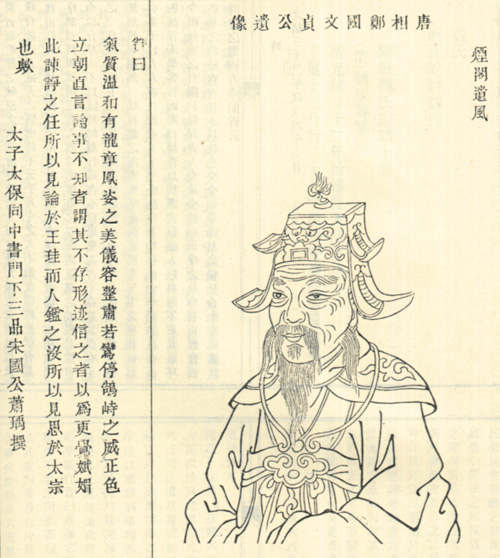 煙閣遺風
唐相鄭國文貞公遺像
贊曰
氣質溫和有龍章鳳姿之美儀容整肅若鸞停鵠峙之威正色
立朝直言論事不知者謂其不存形迹信之者以爲更覺斌媚
此諫諍之任所以見論於王珪而人鑑之沒所以見思於太宗
也歟
太子太保同中書門下三品宋國公蕭瑀撰